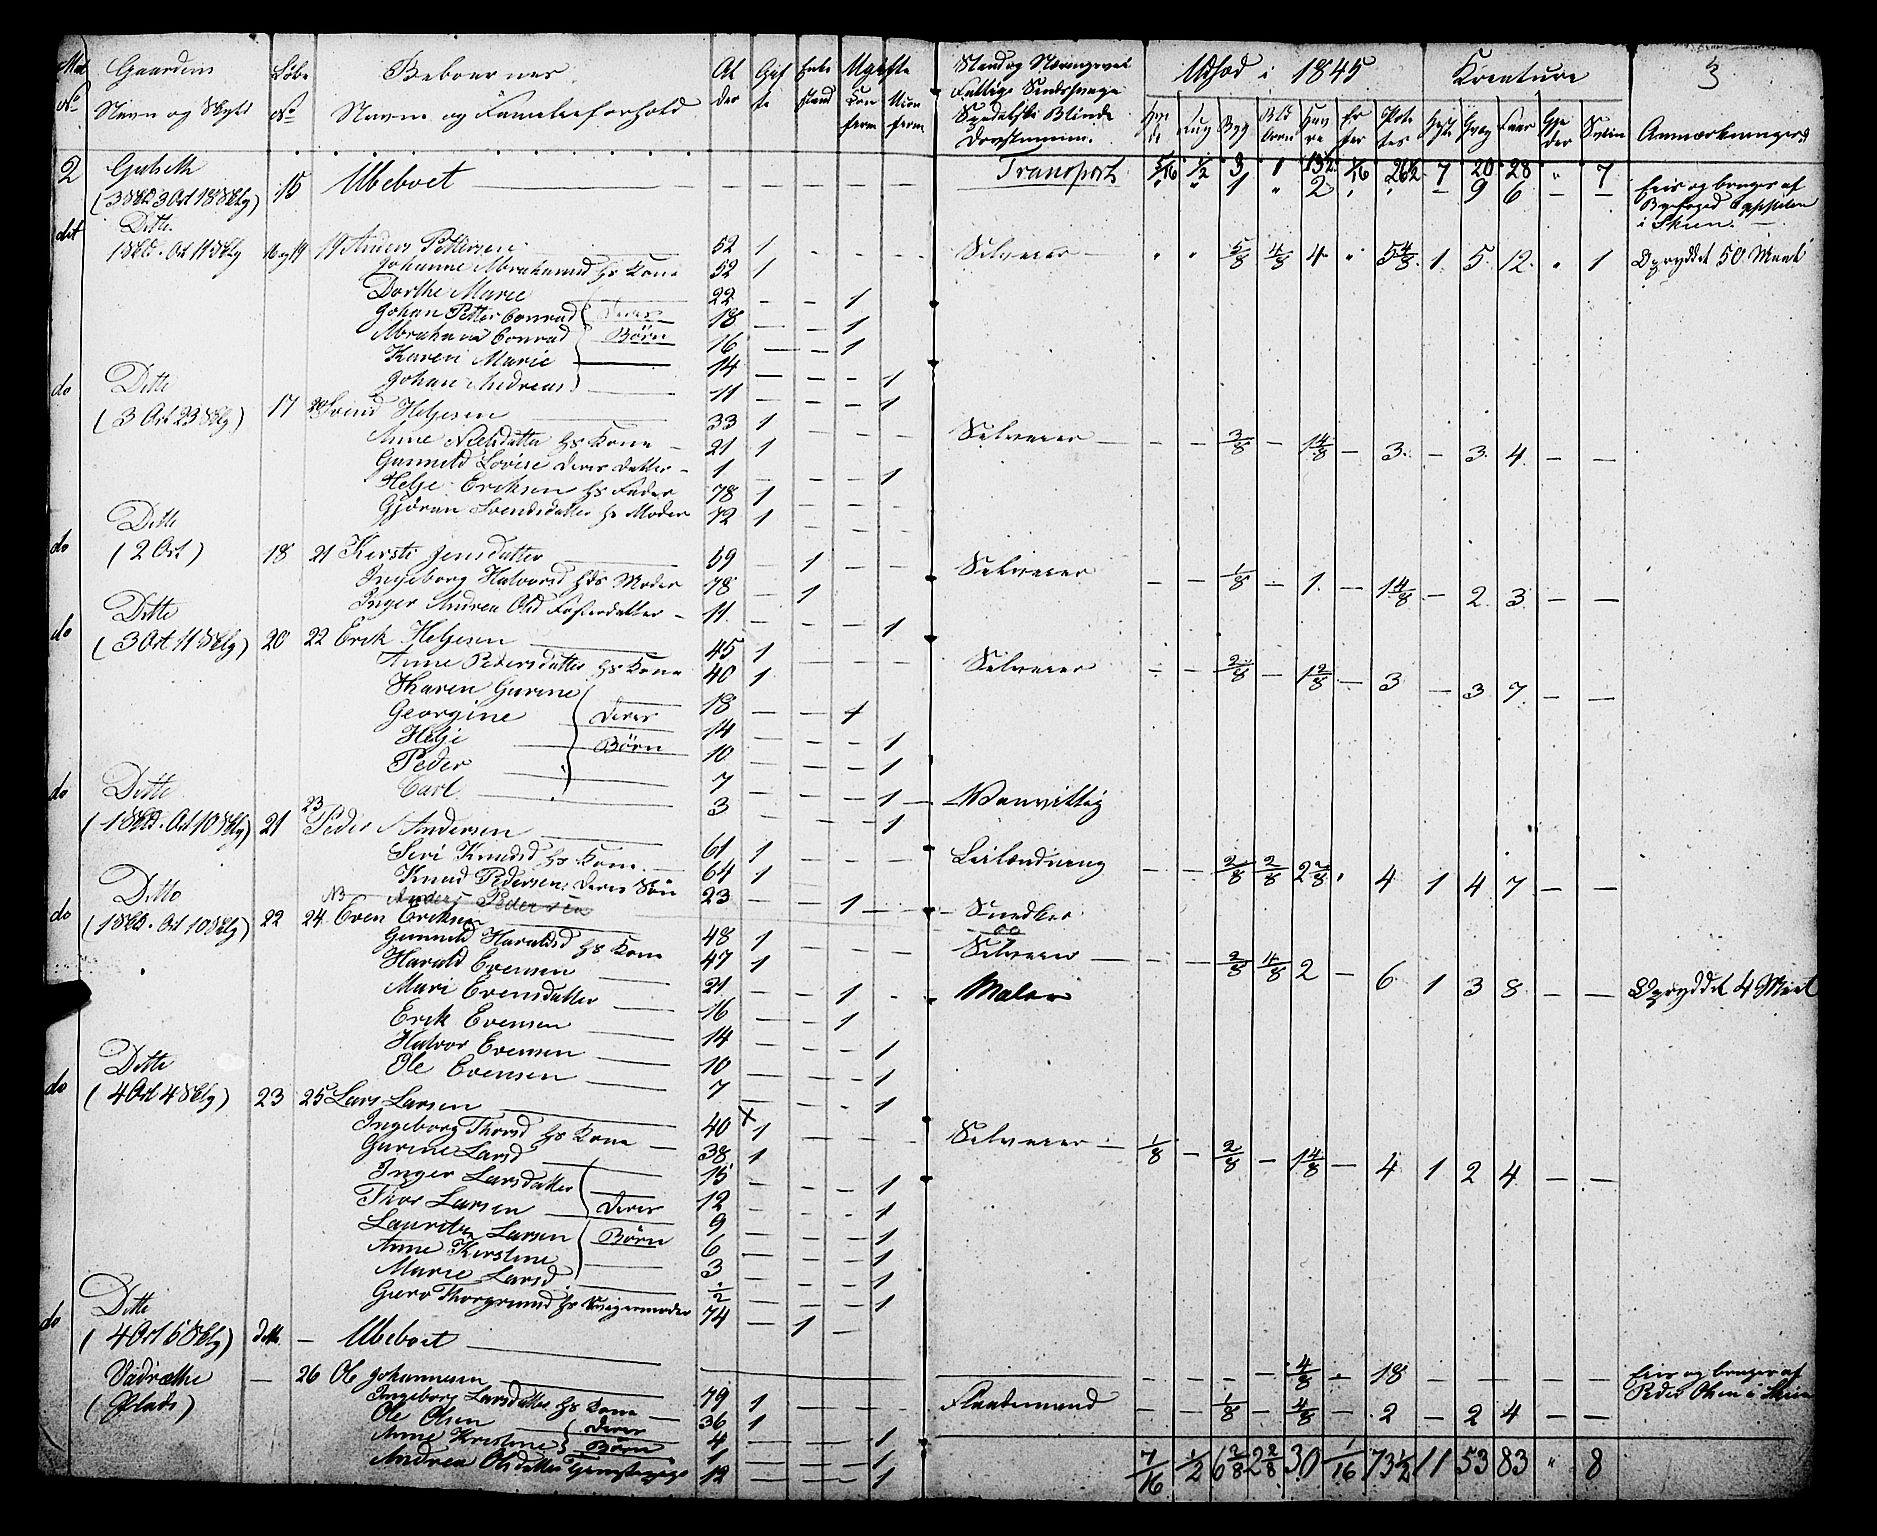 Mat Gaardens Löbe Beboernes Al Gif Enke Ugifte Stand og Næringsvei Udsæd i 1845 Kreature 3
No Navn og Skyld No Navne og Familieforhold der te stand Kon Ukon Fattige Sindssvage
firm firm Spedalske Blinde Hve Rug Byg Bld Hav Er Pote Heste Qvæg Faar Gje Sviin Anmærkninger
Døvstumme. de korn re ter tes der
2 Gulseth Transport 5/16 1/2 3 1 13½ 1/16 26½ 7 20 28 " 7
(3 Ort 18 Skg) 15 Ubeboet " " 1 " 2 " " - 9 6 - - Eies og bruges af
Byfoged
i Skien.
dit Ditte
Ort 11 Skg 16 og 19 19 Anders Pettersen 52 1 Selveier " " 5/8 4/8 4 " 5 4/8 1 5 12 " 1 Opryddet 50 Maal
Johanne Abrahamsd hs Kone 52 1
Dorthe Marie 22 1
Johan Petter Conrad Deres 18 1
Abraham Conrad Börn 16 1
Karen Marie 14 1
Johan Andreas 11 1
do Ditte
(3 Ort 23 Skg) 17 20 Svend Heljesen 33 1 Selveier - - 3/8 - 1 4/8 - 3 - 3 4 - -
Anne Nielsdatter hs Kone 21 1
Gunnild Lovise Deres Datter 1 1
Helje Eriksen hs Fader 78 1
Gjöran Svendsdatter hs Moder 72 1
do Ditte
(2 Ort) 18 21 Kirsti Jensdatter 59 1 Selveier - - 1/8 - 1 - 1 4/8 - 2 3 - -
Ingeborg Halvorsd hds Moder 78 1
Inger Andrea Olsd Fosterdatter 11 1
do Ditte
(3 Ort 11 Skg) 20 22 Erik Heljesen 45 1 Selveier - - 2/8 - 1 2/8 - 3 - 3 7 - -
Anne Pedersdatter hs Kone 40 1
Karen Gurine 18 1
Georgine Deres 14 1
Helje Börn 10 1
Peder 7 1 Vanvittig
Carl 3 1
do Ditte 23
Ort 10 Skg) 21 Peder Andersen 61 1 Leilænding - - 2/8 2/8 2 2/8 " 4 1 4 7 - -
Siri Knudsd hs Kone 64 1
Knud Pedersen Deres Sön 23 1 Snedker
do Ditto NB Anders Pedersen
Ort 10 Skg) 22 24 Even Eriksen 48 1 Selveier - - 2/8 4/8 2 - 6 1 3 8 - - Opryddet 4 Meel
Gunnild Haraldsd hs Kone 47 1
Harald Evensen 21 1 Maler
Mari Evensdatter 16 1
Erik Evensen 14 1
Halvor Evensen 10 1
Ole Evensen 7 1
do Ditte
(4 Ort 4 Skg) 23 25 Lars Larsen 40 X 1 Selveier 1/8 - 2/8 - 1 4/8 - 4 1 2 4 - -
Ingeborg Thorsd hs Kone 38 1
Gurine Larsd 15 1
Inger Larsdatter 12 1
Thor Larsen Deres 9 1
Lauritz Larsen Börn 6 1
Anne Kirstine 3 1
Marie Larsd ½ 1
Thorgrimsd hs Svigermoder 74 1
do Ditte
(4 Ort 6 Skg) ditte - Ubeboet - - - - 4/8 - 18 - - - - - Eies og bruges af
Peder Olsen i Skien
(Plads) - 26 Ole Johannesen 79 1 - - 1/8 - 4/8 - 2 - 2 4 - -
Ingeborg Larsdatter hs Kone 36 1
Ole Olsen Deres 4 1
Anne Kirstine Börn 1 1
Andrea Olsdatter Tjenestepige 12 1
7/16 1/2 6 3/8 2 2/8 30 1/16 73½ 11 53 83 " 8